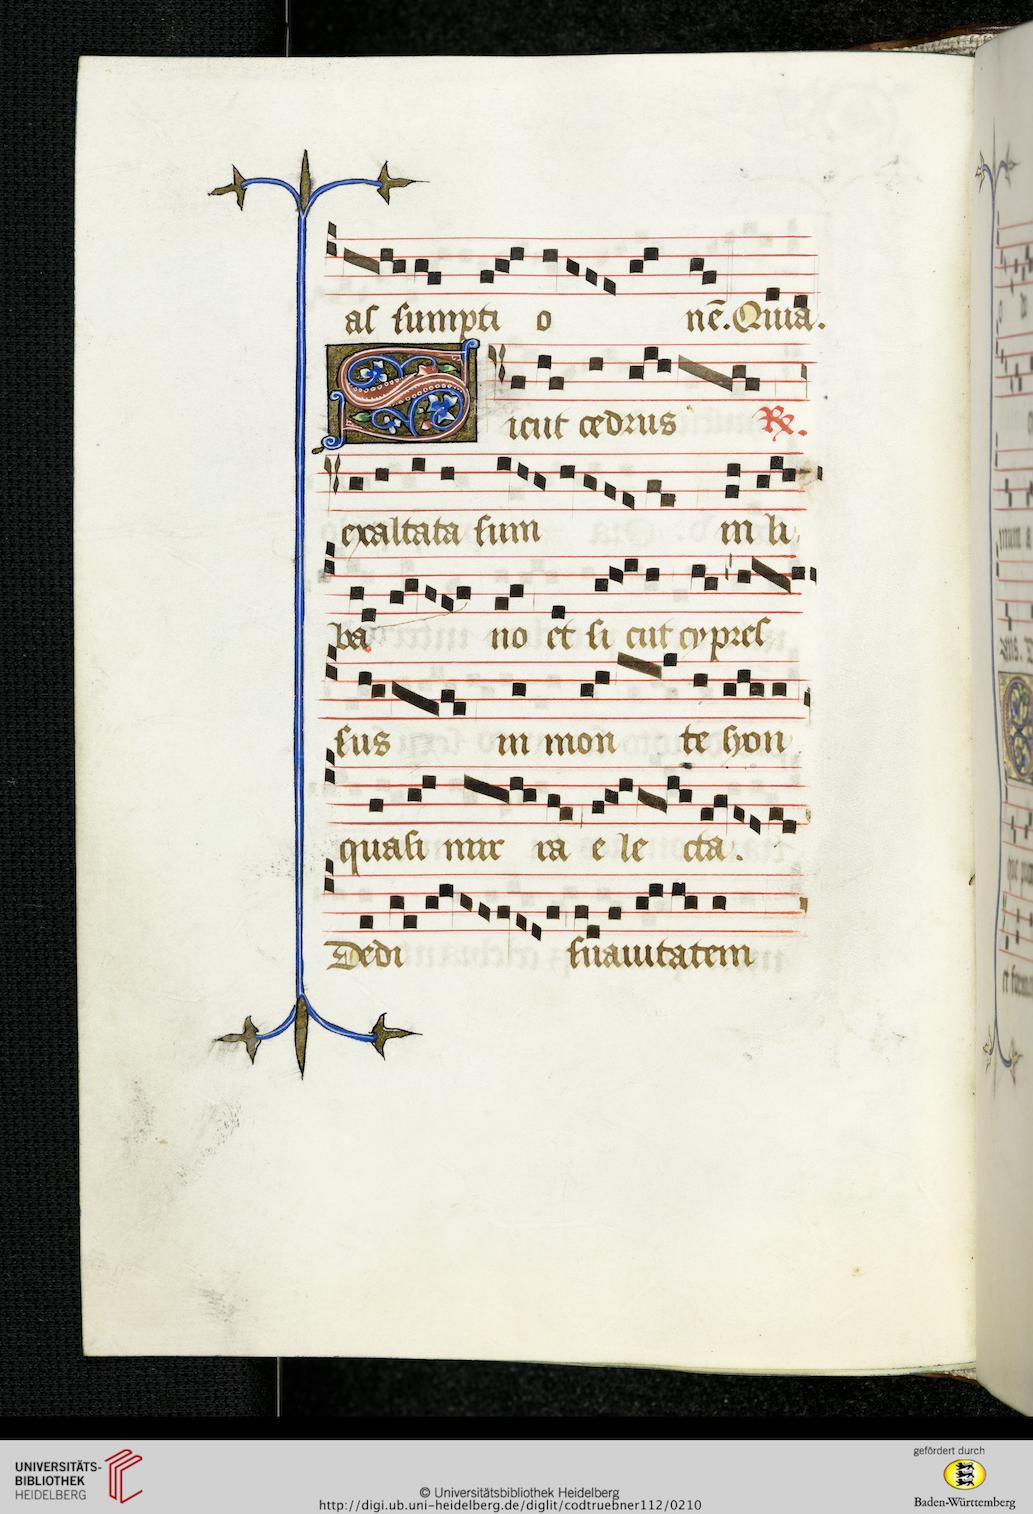 as sumpti o nē. Quia.
Sicut cedrus R.
exaltata sum in li
ba no et si cut cypres
sus in mon te syon
quasi mir ra e le cta.
Dedi suauitatem
UNIVERSITÄTS-
BIBLIOTHEK
HEIDELBERG
© Universitätsbibliothek Heidelberg
http://digi.ub.uni-heidelberg.de/diglit/codtruebner112/0210
gefördert durch
Baden-Württemberg